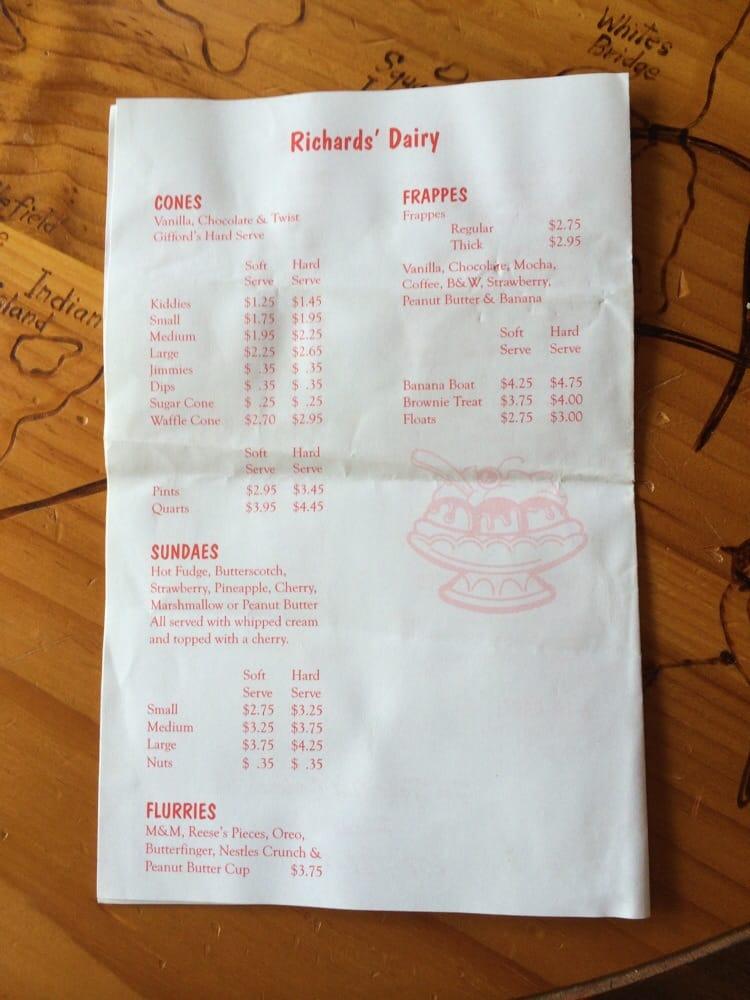 White's
Bridge
Indian
Island
Richards' Dairy
CONES
Vanilla, Chocolate & Twist
Gifford's Hard Serve
Soft Hard
Serve Serve
Kiddies $1.25 $1.45
Small $1.75 $1.95
Medium $1.95 $2.25
Large $2.25 $2.65
Jimmies $ .35 $ .35
Dips $ .35 $ .35
Sugar Cone $ .25 $ .25
Waffle Cone $2.70 $2.95
Soft Hard
Serve Serve
Pints $2.95 $3.45
Quarts $3.95 $4.45
SUNDAES
Hot Fudge, Butterscotch,
Strawberry, Pineapple, Cherry,
Marshmallow or Peanut Butter
All served with whipped cream
and topped with a cherry.
Soft Hard
Serve Serve
Small $2.75 $3.25
Medium $3.25 $3.75
Large $3.75 $4.25
Nuts $ .35 $ .35
FLURRIES
M&M, Reese's Pieces, Oreo,
Butterfinger, Nestles Crunch &
Peanut Butter Cup $3.75
FRAPPES
Frappes
Regular $2.75
Thick $2.95
Vanilla, Chocolate, Mocha,
Coffee, B&W, Strawberry,
Peanut Butter & Banana
Soft Hard
Serve Serve
Banana Boat $4.25 $4.75
Brownie Treat $3.75 $4.00
Floats $2.75 $3.00